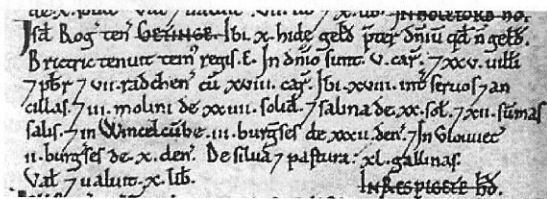 Isd Rog ten GETINGE. Ibi. x. hidę geld p̄ter dn̄iu qd n̄ geld.
Brictric tenuit tem̄ regis. E. In dn̄io sunt. v. car̄. ⁊ xxv. uilli
⁊ p̄br ⁊ vii. radchen̄ cū xviii. car̄. Ibi. xviii. int̄ seruos ⁊ an
cillas. ⁊ iii. molini de xxiiii. solid. ⁊ salina de xx. sol. ⁊ xii. sūmas
salis. ⁊ in Wincelcūbe. iii. burg̅ses de xxxii. den̄. ⁊ In Glouuec̄
ii. burg̅ses de x. den̄. De silua ⁊ pastura: xl. gallinas.
Val ⁊ ualuit. x. lib.
IN RESPIGETE HD.